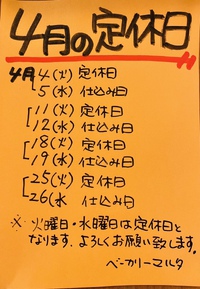 4月の定休日
4月 4(火) 定休日
5(水) 仕込み日
11(火) 定休日
12(水) 仕込み日
18(火) 定休日
19(水) 仕込み日
25(火) 定休日
26(水 仕込み日
※ 火曜日・水曜日は定休日と
なります。よろしくお願い致します。
ベーカリーマルタ